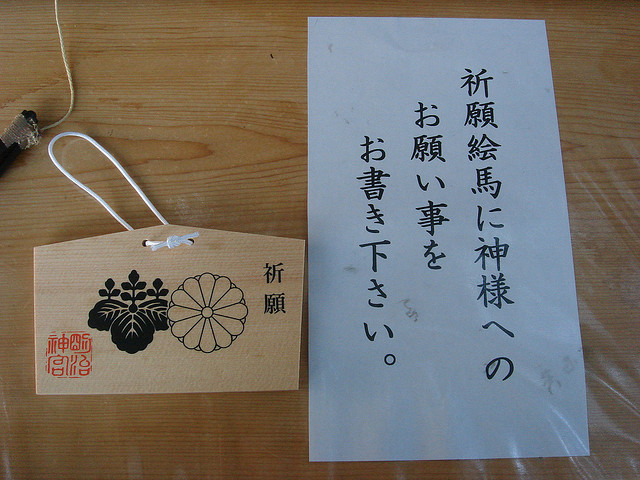 祈願絵馬に神様への
お願い事を
お書き下さい。
祈願
明治
神宮